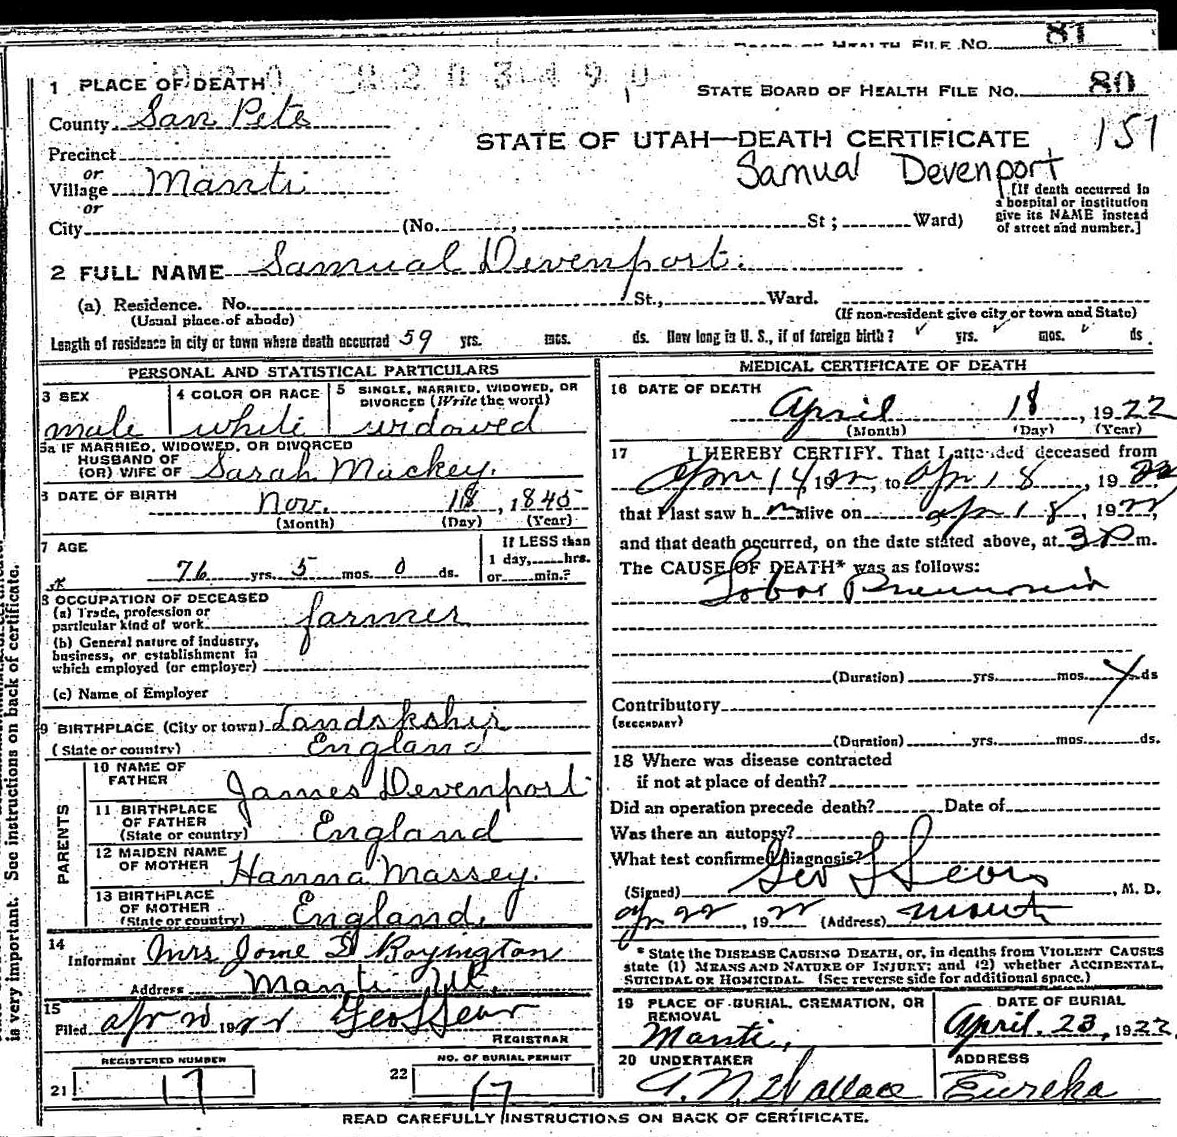 81
BOARD OF HEALTH FILE NO.
1 PLACE OF DEATH
STATE BOARD OF HEALTH FILE NO. 80
County San Pete
STATE OF UTAH—DEATH CERTIFICATE 151
Precinct
or
Village Manti
Samual Devenport
or
[If death occurred in
a hospital or institution
give its NAME instead
of street and number.]
City (No. , St ; Ward)
2 FULL NAME Samual Devenport.
(a) Residence. No. St., Ward.
(Usual place of abode)
(If non-resident give city or town and State)
Length of residence in city or town where death occurred 59 yrs. mos. ds. How long in U. S., if of foreign birth? yrs. mos. ds.
PERSONAL AND STATISTICAL PARTICULARS
3 SEX male
4 COLOR OR RACE white
5 SINGLE, MARRIED, WIDOWED, OR
DIVORCED (Write the word)
widowed
5a IF MARRIED, WIDOWED, OR DIVORCED
HUSBAND OF
(OR) WIFE OF Sarah Mackey.
6 DATE OF BIRTH Nov. 18, 1845
(Month) (Day) (Year)
7 AGE
76 yrs. 5 mos. 0 ds.
If LESS than
1 day, hrs.
or min.?
8 OCCUPATION OF DECEASED
(a) Trade, profession or
particular kind of work farmer
(b) General nature of industry,
business, or establishment in
which employed (or employer)
(c) Name of Employer
9 BIRTHPLACE (City or town) Landskshir
(State or country) England
PARENTS
10 NAME OF
FATHER James Devenport
11 BIRTHPLACE
OF FATHER
(State or country) England
12 MAIDEN NAME
OF MOTHER Hanna Massey.
13 BIRTHPLACE
OF MOTHER
(State or country) England.
14
Informant Mrs Jome D Boyington
Address Manti Ut.
15
Filed apr 20 1922 Geo L Sears
REGISTRAR
REGISTERED NUMBER
21 17
NO. OF BURIAL PERMIT
22 17
MEDICAL CERTIFICATE OF DEATH
16 DATE OF DEATH
April 18, 1922
(Month) (Day) (Year)
17 I HEREBY CERTIFY. That I attended deceased from
Apr 14, 1922, to Apr 18, 1922
that I last saw h m alive on apr 18, 1922,
and that death occurred, on the date stated above, at 3 P m.
The CAUSE OF DEATH* was as follows:
Lobar Pneumonia
(Duration) yrs. mos. ds
Contributory
(SECONDARY)
(Duration) yrs. mos. ds.
18 Where was disease contracted
if not at place of death?
Did an operation precede death? Date of
Was there an autopsy?
What test confirmed diagnosis?
(Signed) Geo L Sears, M. D.
Apr 22, 1922 (Address) Manti
* State the DISEASE CAUSING DEATH, or, in deaths from VIOLENT CAUSES
state (1) MEANS AND NATURE OF INJURY; and (2) whether ACCIDENTAL,
SUICIDAL OR HOMICIDAL. (See reverse side for additional space.)
19 PLACE OF BURIAL, CREMATION, OR
REMOVAL
Manti,
DATE OF BURIAL
April. 23, 1922
20 UNDERTAKER
A. N. Wallace
ADDRESS
Eureka
READ CAREFULLY INSTRUCTIONS ON BACK OF CERTIFICATE.
is very important. See instructions on back of certificate.